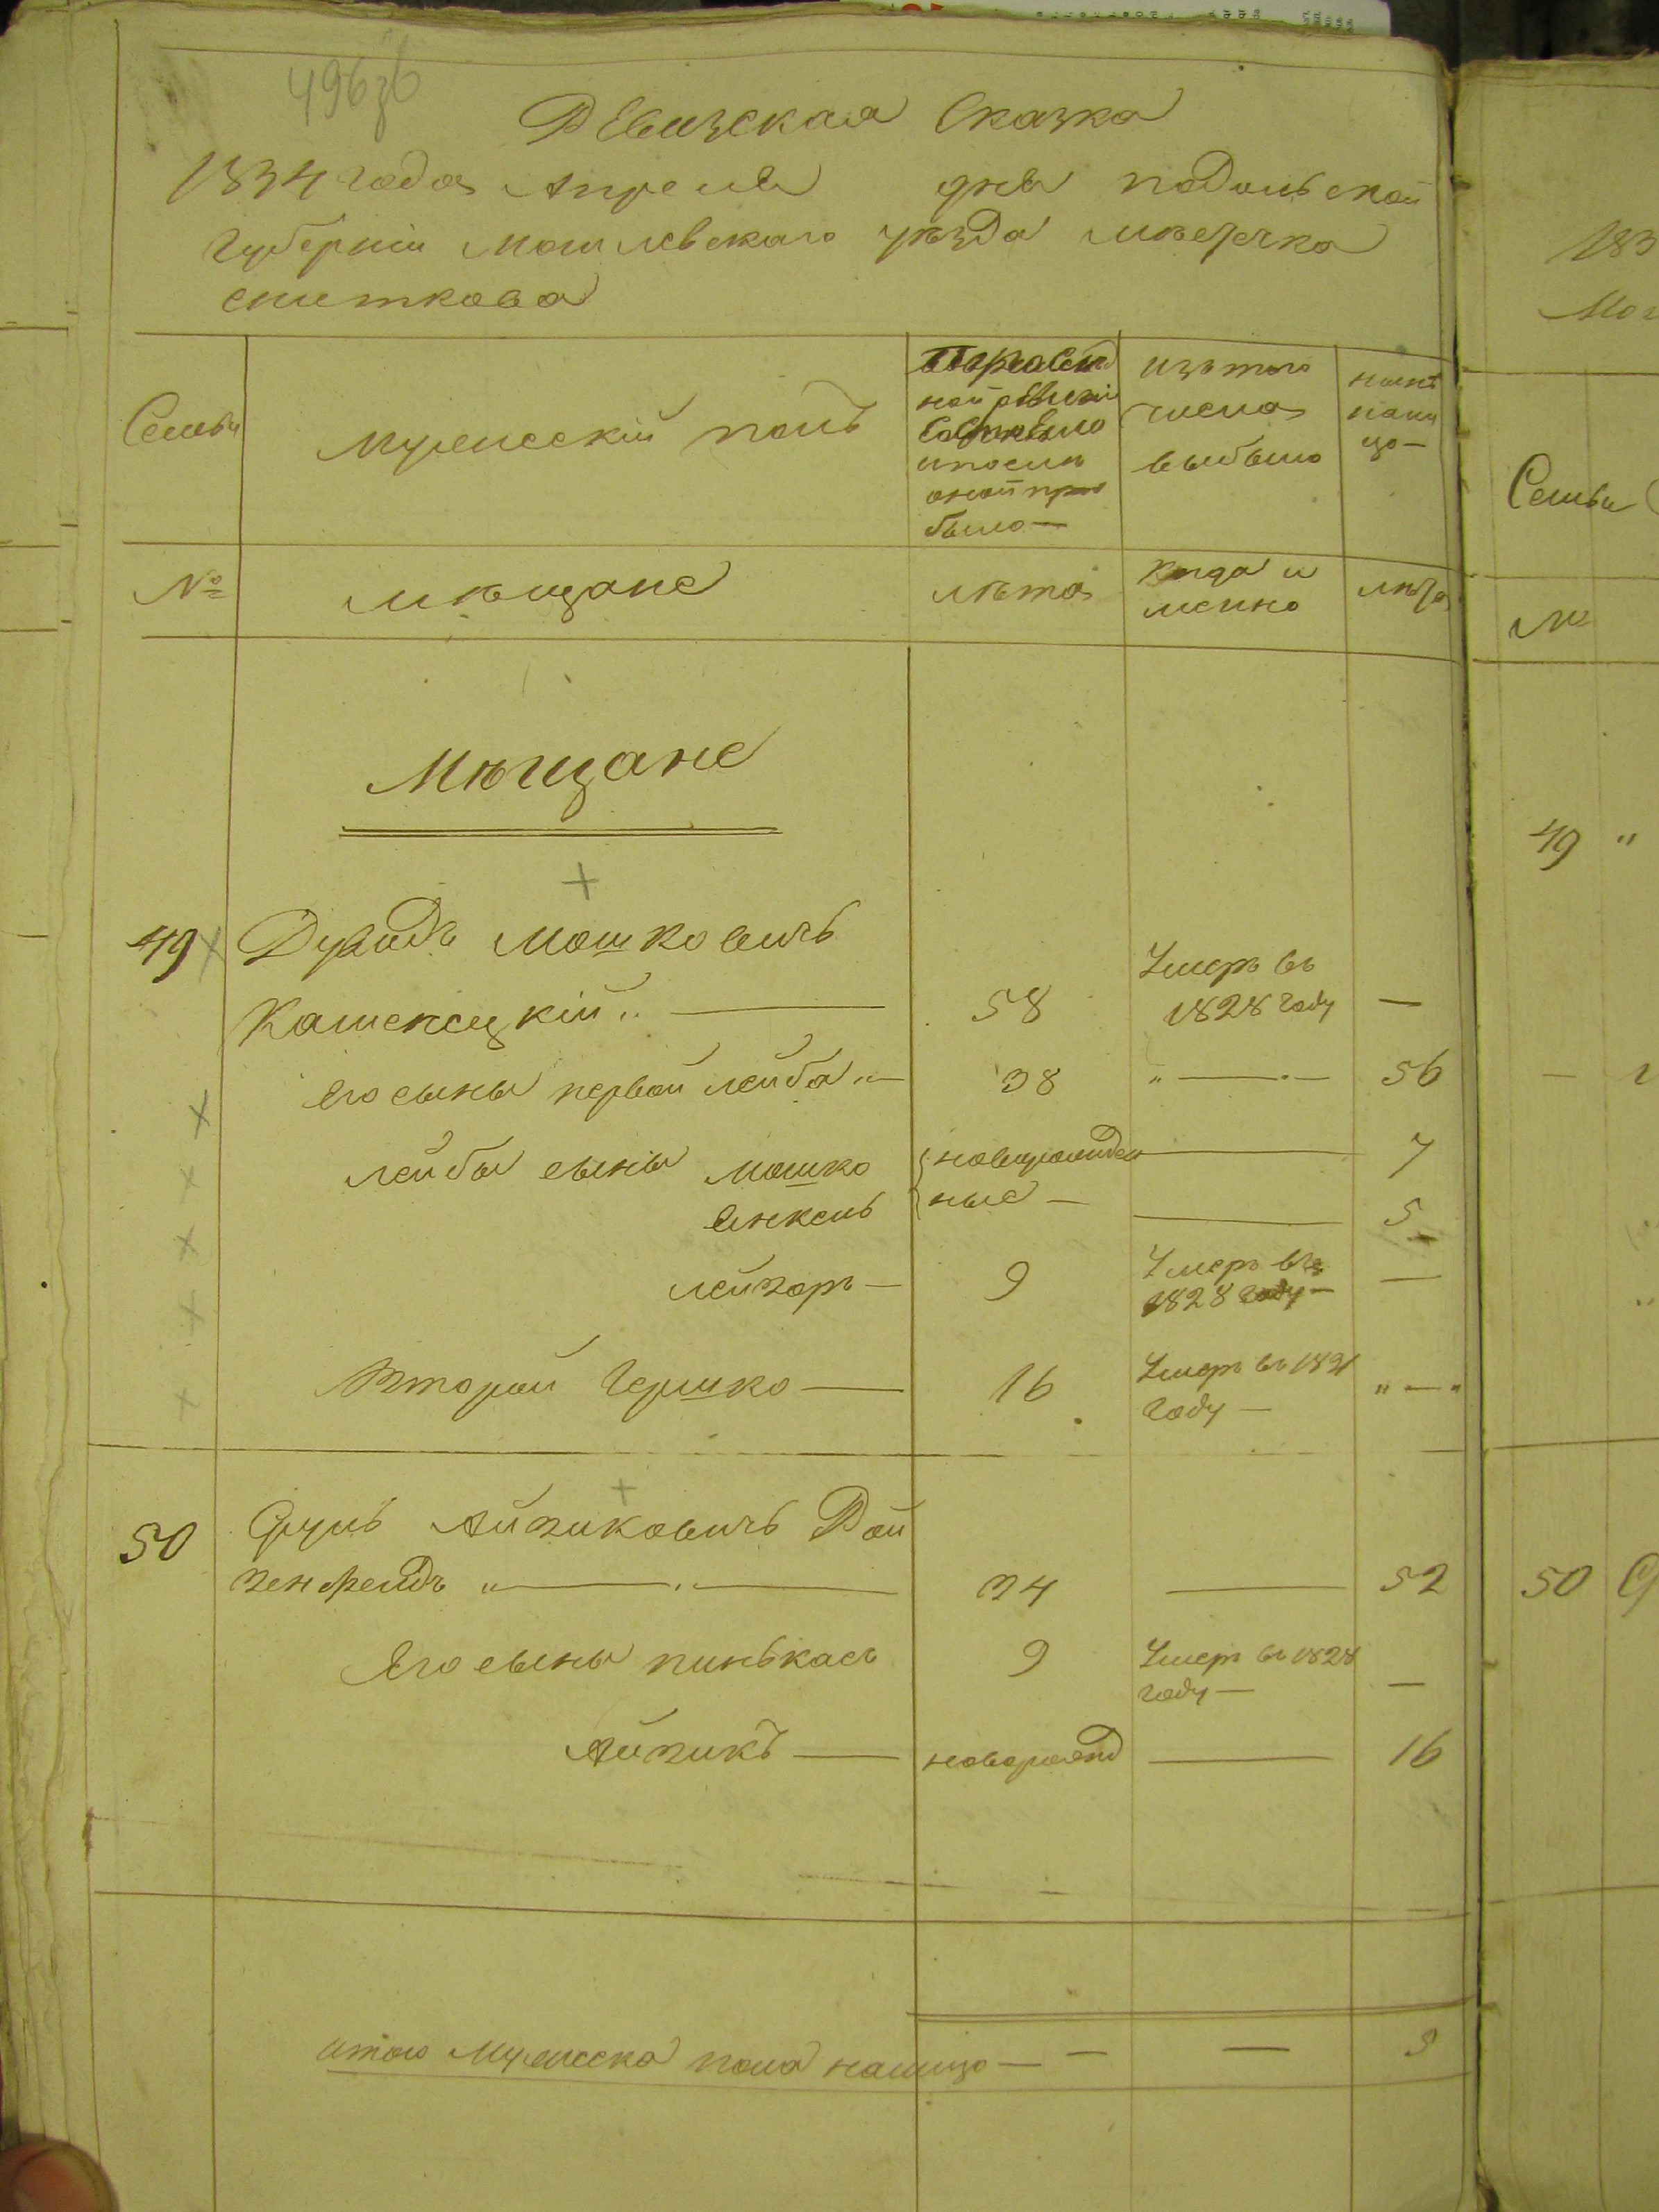 496зб
Ревизская Сказка
1834 года Апреля дня подольской
губерніи могилевскаго уѣзда мѣстечка
сниткова
Семьи
мужескій полъ
по послѣд
ной ревизіи
состояло
и послѣ
оной при
было —
изъ того
числа
выбыло
нынѣ
нали
цо —
№
мѣщане
лѣта
когда и
менно
лѣта
Мѣщане
49 Дувидъ мошковичъ
Каменецкій 58 Умеръ въ 1828 году —
Его сыны первой лейба 38 „ — 56
лейбы сыны мошко новорожден — 7
Янкель ные — — 5
лейзоръ — 9 Умеръ въ 1828 году — —
Второй Гершко — 16 Умеръ въ 1831 году — „ — „
50 Сруль Айзиковичъ Рой
зенфелдъ „ — „ — 34 — 52
Его сыны пинькасъ 9 Умеръ въ 1828 году — —
Айзикъ — новорожд — 16
итого мужеска пола налицо — — — 5
183
Мог
Семьи
№
49 "
50 С